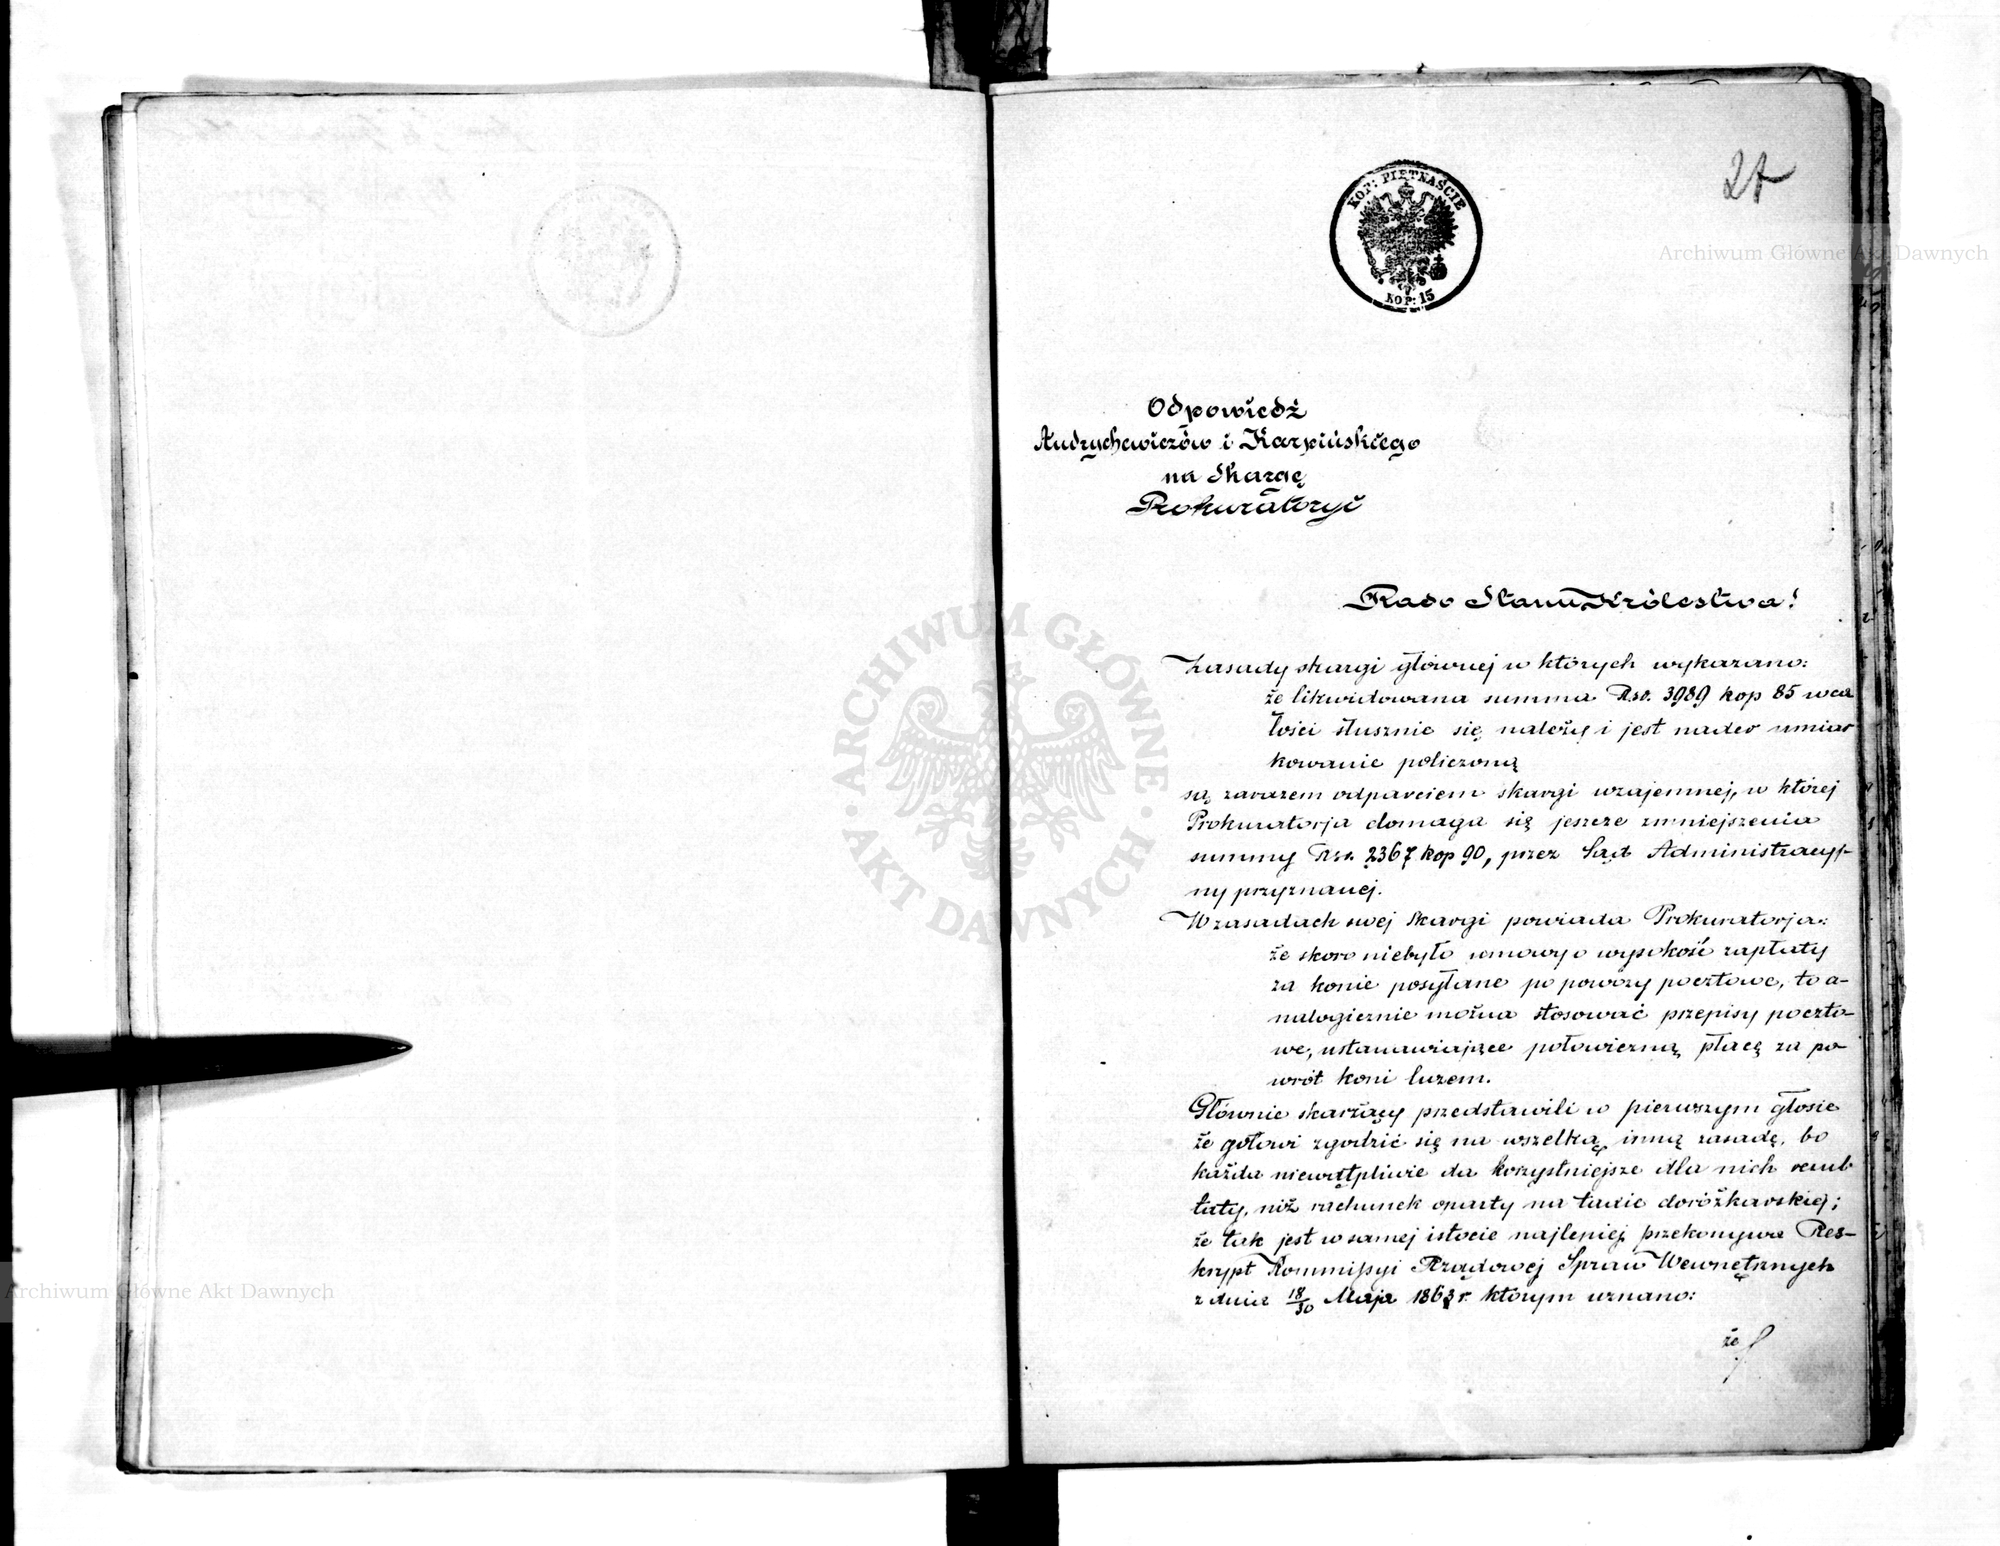 27
KOP: PIĘTNAŚCIE
KOP: 15
Odpowiedź
Andrychewiczów i Karpińskiego
na Skargę
Prokuratoryi
Rado Stanu Królestwa!
Zasady skargi głównej w których wykazano:
że likwidowana summa Rso. 3989 kop 85 wca
łości słusznie się należy i jest nader umiar
kowanie policzoną
są zarazem odparciem skargi wzajemnej, w której
Prokuratorja domaga się jeszcze zmniejszenia
summy Rso. 2367 kop 90, przez Sąd Administracyj-
ny przyznanej.
W zasadach swej skargi powiada Prokuratorja:
że skoro niebyło umowy o wysokość zapłaty
za konie posyłane po powozy pocztowe, to a-
nalogicznie można stosować przepisy poczto-
we, ustanawiające połowiczną płacę za po-
wrót koni luzem.
Głównie skarżący przedstawili w pierwszym głosie
że gotowi zgodzić się na wszelką inną zasadę, bo
każda niewątpliwie da korzystniejsze dla nich rezul
taty, niż rachunek oparty na taxie dorożkarskiej;
że tak jest w samej istocie najlepiej przekonywa Res-
krypt Kommissyi Rządowej Spraw Wewnętrznych
z dnia 18/30 Maja 1863 r. którym uznano:
że
Archiwum Główne Akt Dawnych
ARCHIWUM GŁÓWNE AKT DAWNYCH
Archiwum Główne Akt Dawnych